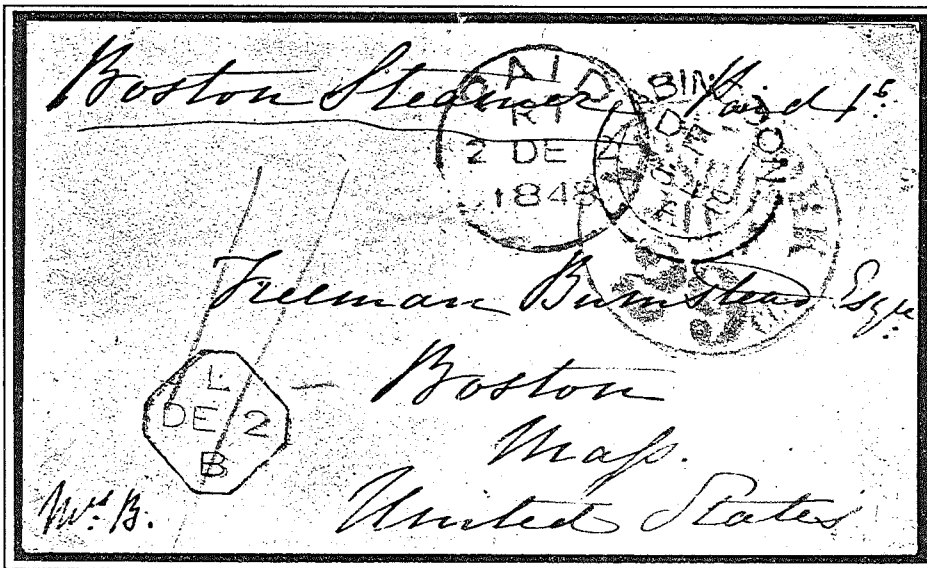 Boston Steamer, Paid 1s.
PAID
R1
2 DE 2
1848
ABINGDON
DE
Freeman Bumstead Esqre.
Boston
Mass.
United States
L
DE 2
B
Mrs. B.